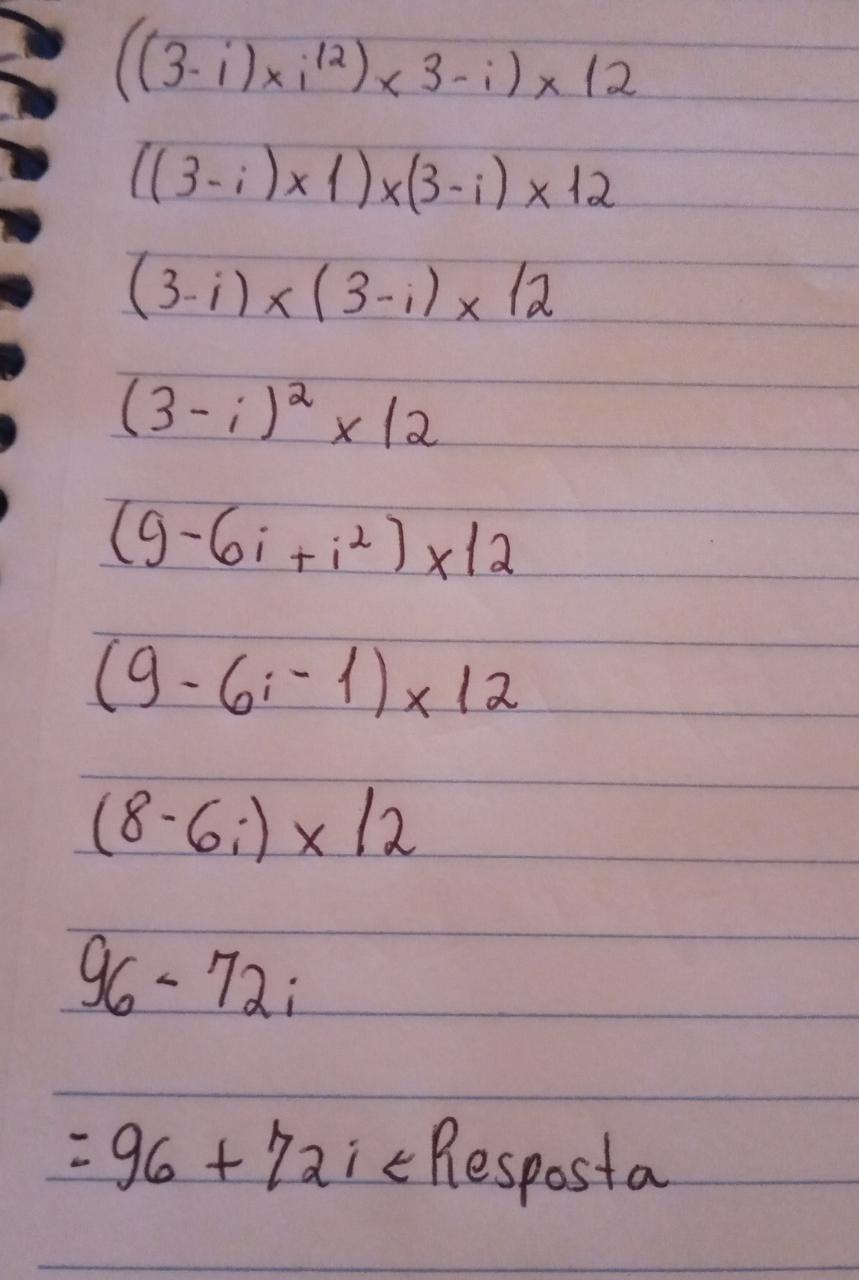 ((3-i)×i¹²)× 3-i)× 12
((3-i)×1)×(3-i)×12
(3-i)×(3-i)× 12
(3-i)²×12
(9-6i+i²)×12
(9-6i-1)×12
(8-6i)×12
96-72i
=96+72i←Resposta